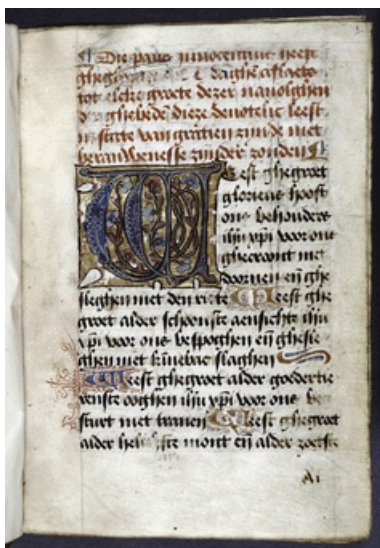 Die paus innocentius heeft
daghen aflaets
tot elcke groete dezer navolghen
der ghebeden dieze devotelic leest
in state van gratien zijnde met
berauwenesse zijnder zonden
Weest ghegroet
glorieus hooft
ons behouders
ihu xpi voor ons
ghecroont met
doornen en ghe
sleghen met den riete Weest ghe
groet alder schoonste aensichte ihu
xpi voor ons bespoghen en ghesle
ghen met kinnebac slaghen
Weest ghegroet alder goedertie
renste ooghen ihu xpi voor ons be
sturt met tranen Weest ghegroet
alder mont en alder zoetste